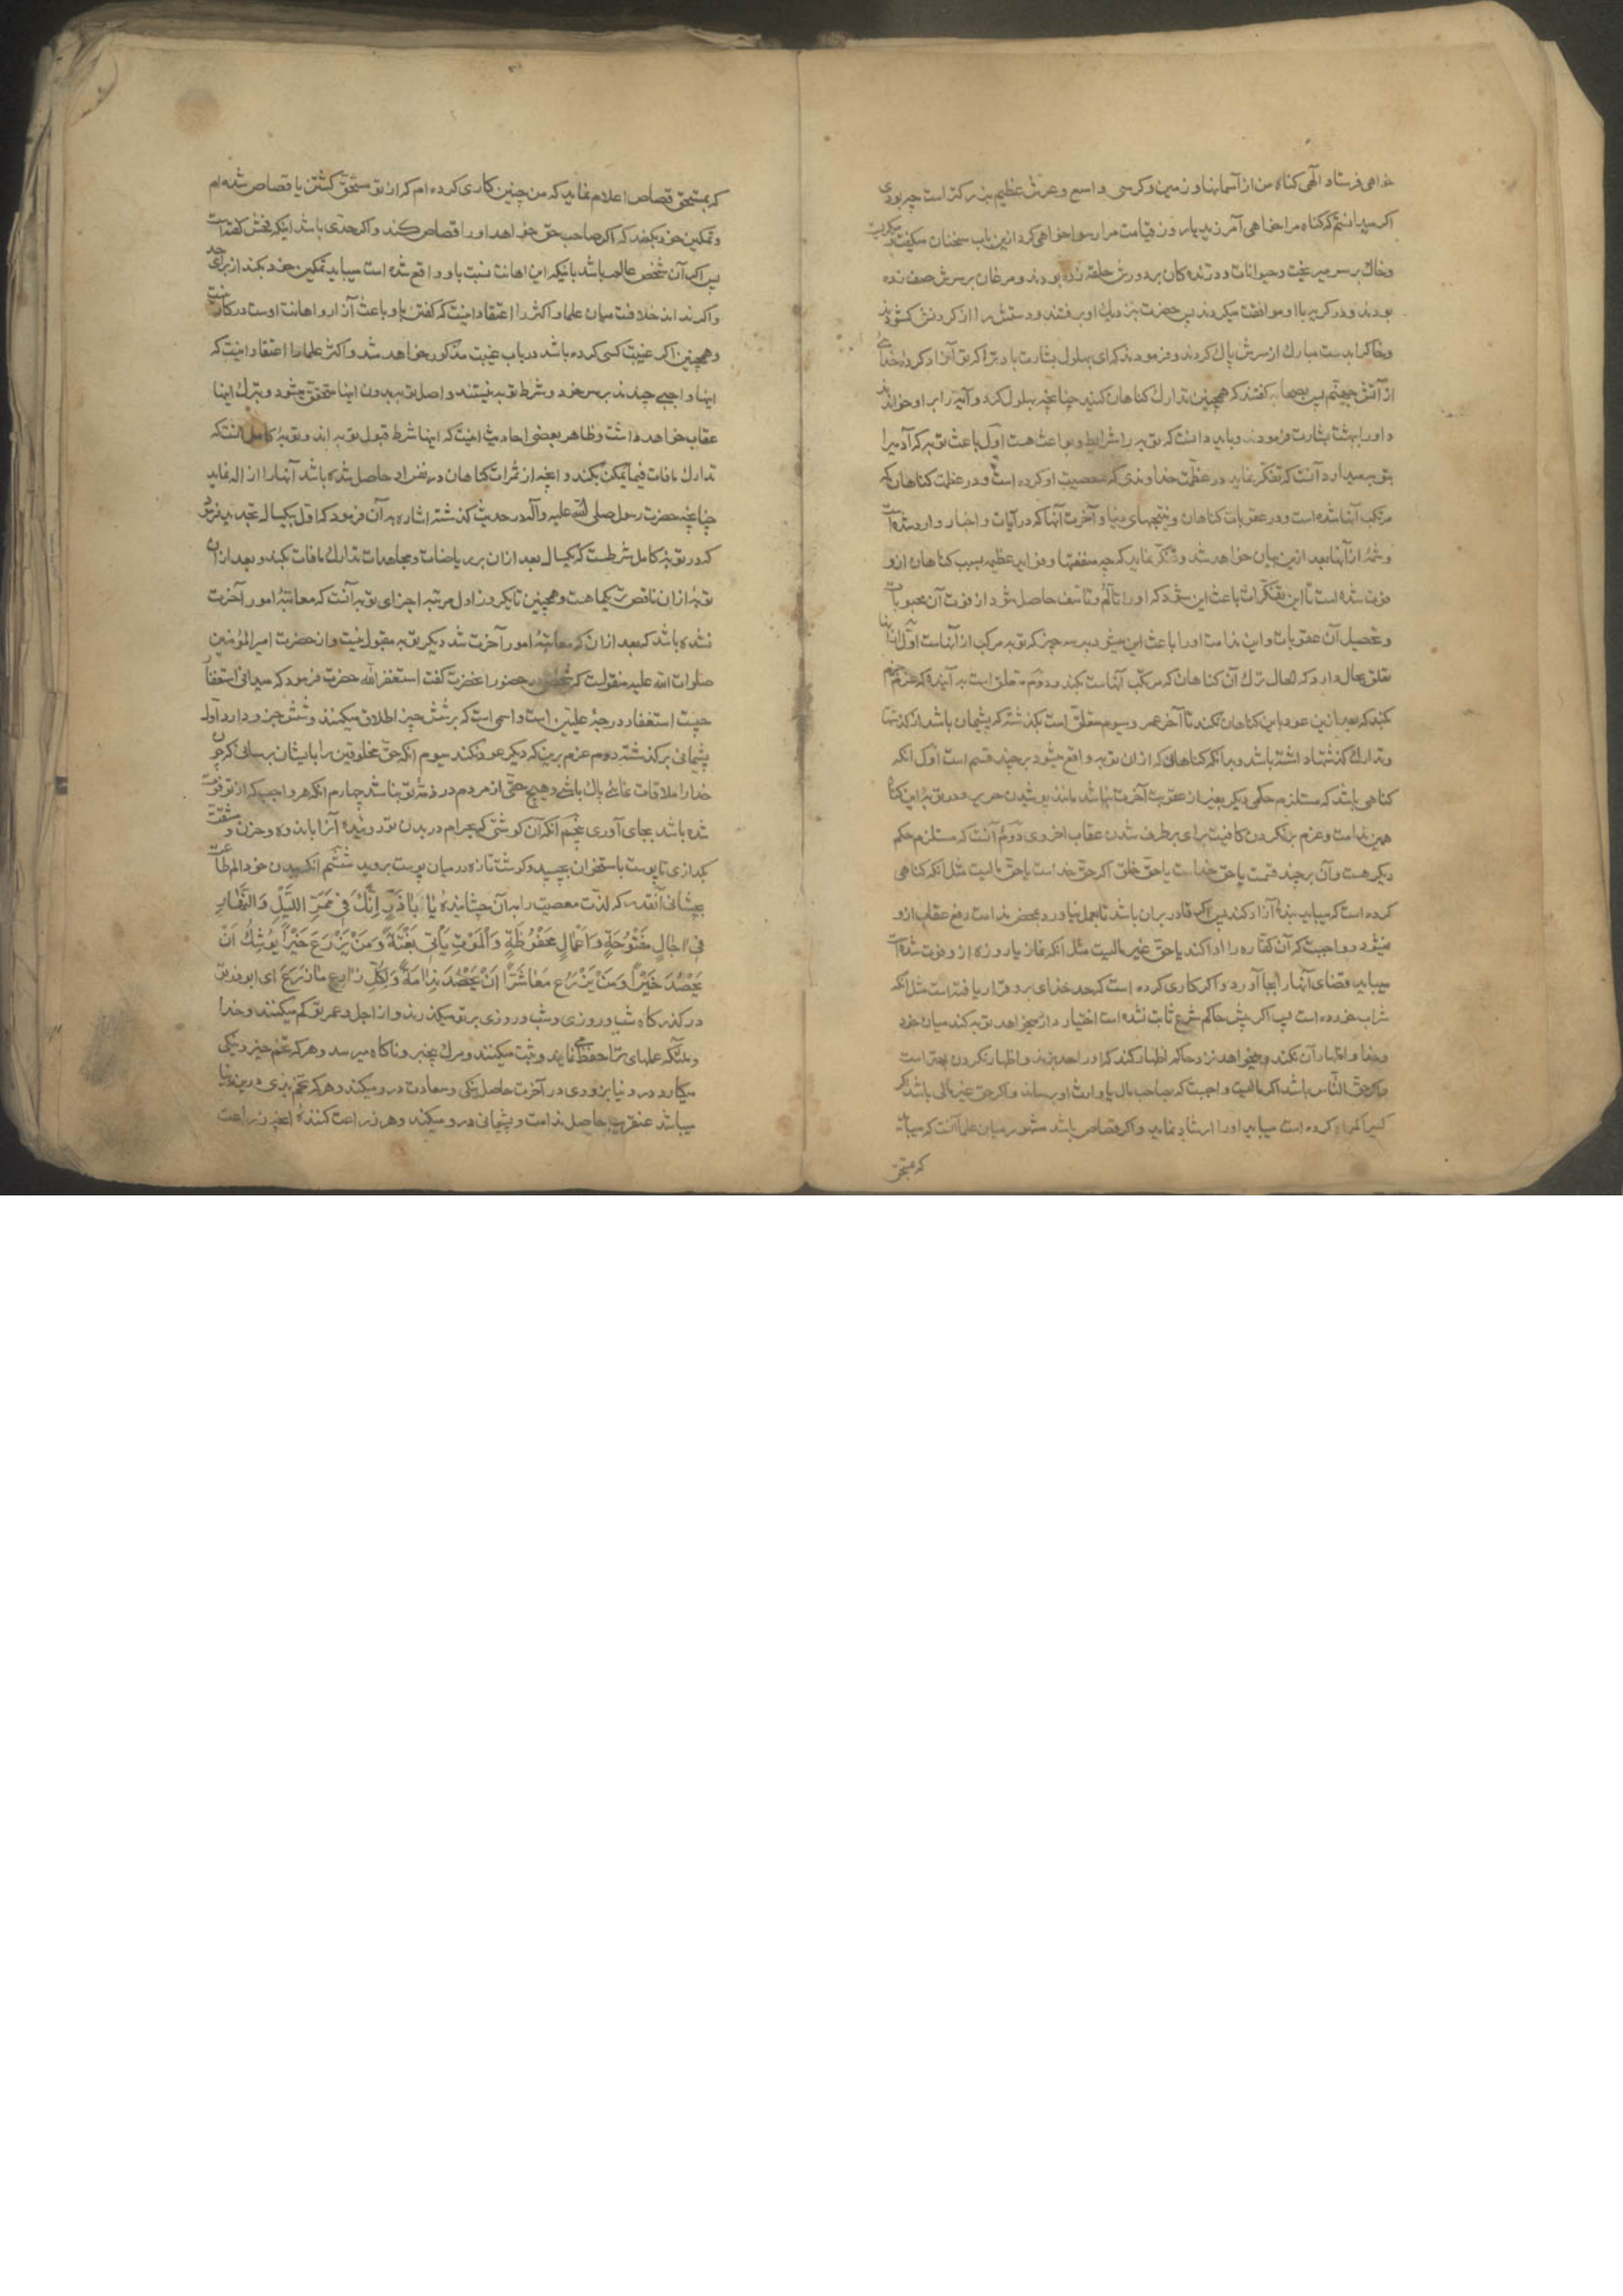 خواهی فرستاد الهی کناه من از آسمانها و زمین و کرسی واسع و عرش عظیم بزرکتر است چه بودی
اکر میدانستم که کناه مرا خواهی آمرزید یا در روز قیامت مرا رسوا خواهی کرد ازین باب سخنان میکفت و میکریست
و خاک بر سر میریخت و حیوانات و درنده کان بر دورش حلقه زده بودند و مرغان بر سرش صف زده
بودند و در کریه با او موافقت میکردند پس حضرت بنزدیک او برفتند و دستش را از کردنش کشودند
و خاکرا بدست مبارک از سرش پاک کردند و فرمودند که ای بهلول بشارت باد ترا که تو آزاد کردهٔ خدائی
از آتش جهنم پس بصحابه کفتند که همچنین تدارک کناهان کنید چنانچه بهلول کرد و آیه را بر او خواندند
و او را بهشت بشارت فرمودند و باید دانست که توبه را شرایط و بواعث هست اول باعث توبه که آدمیرا
بتوبه میدارد آنست که تفکر نماید در عظمت خداوندی که معصیت او کرده است و در عظمت کناهان که
مرتکب آنها شده است و در عقوبات کناهان و نتیجهای دنیا و آخرت آنها که در آیات و اخبار وارد شده است
و شمهٔ از آنها بعد ازین بیان خواهد شد و تفکر نماید که چه منفعتها و فواید عظیمه بسبب کناهان ازو
فوت شده است تا این تفکرات باعث این شود که او را تألم و تأسف حاصل شود از فوت آن محبوبات
و تحصیل آن عقوبات و این ندامت او را باعث این میشود بر سه چیز که توبه مرکب از آنهاست اول آنها
تعلق بحال دارد که الحال ترک آن کناهان که مرتکب آنهاست بکند و دوم متعلق است به آینده که عزم جزم
کند که بعد ازین عود باین کناهان نکند تا آخر عمر و سیوم متعلق است بکذشته که پشیمان باشد از کذشتها
و تدارک کذشتها داشته باشد و بدانکه کناهانی که از ان توبه واقع میشود بر چند قسم است اول آنکه
کناهی باشد که مستلزم حکمی دیکر بغیر از عقوبت آخرت نباشد مانند پوشیدن حریر و در توبه این کناه
همین ندامت و عزم برنکردن کافیست برای برطرف شدن عقاب اخروی دوم آنست که مستلزم حکم
دیکر هست و آن بر چند قسمت یا حق خداست یا حق خلق اکر حق خداست یا حق مالیست مثل آنکه کناهی
کرده است که میباید بندهٔ آزاد کند پس اکر قادر بر آن باشد تا بعمل نیاورد بمحض ندامت رفع عقاب ازو
نمیشود و واجبست که آن کفاره را ادا کند یا حق غیر مالیست مثل آنکه نماز یا روزه ازو فوت شده است
میباید قضای آنها را بجا آورد و اکر کاری کرده است که حد خدای برو قرار یافته است مثل آنکه
شراب خورده است پس اکر پیش حاکم شرع ثابت نشده است اختیار دارد میخواهد توبه کند میان خود
و خدا و اظهار آن نکند و میخواهد نزد حاکم اظهار کند که او را حد بزند و اظهار نکردن بهتر است
و اکر حق الناس باشد اکر مالیست واجبست که بصاحب مال یا وارث او برساند و اکر حق غیر مالی باشد اکر
کسیرا کمراه کرده است میباید او را ارشاد نماید و اکر قصاص باشد مشهور میان علما آنست که میباید
که مستحق
که بمستحق قصاص اعلام نماید که من چنین کاری کرده ام که از تو مستحق کشتن یا قصاص شده ام
و تمکین خود بکند که اکر صاحب حق خواهد او را قصاص کند و اکر حدی باشد اینکه فحش کفته است
پس اکر آن شخص عالم باشد بانیکه این اهانت نسبت باو واقع شده است میباید تمکین خود بکند از برای حد
و اکر نداند خلافست میان علما و اکثر را اعتقاد اینست که کفتن باو باعث آزار و اهانت اوست در کار نیست
و همچنین اکر غیبت کسی کرده باشد در باب غیبت مذکور خواهد شد و اکثر علما را اعتقاد اینست که
اینها واجبی چندند بر سر خود و شرط توبه نیستند و اصل توبه بدون اینها متحقق میشود و بترک اینها
عقاب خواهد داشت و ظاهر بعضی احادیث اینست که اینها شرط قبول توبه اند و توبهٔ کامل آنست که
تدارک مافات فیما یمکن بکند و انچه از ثمرات کناهان در نفس او حاصل شده باشد آنها را ازاله نماید
چنانچه حضرت رسول صلی الله علیه وآله در حدیث کذشته اشاره به آن فرمود که اول بیکسال تحدید فرمود
که در توبهٔ کامل شرطست که یکسال بعد از ان بریاضات و مجاهدات تدارک مافات بکند و بعد از ان
توبهٔ از ان ناقص تر یکماهست و همچنین تا یکروز اول مرتبه اجزای توبه آنست که معاینهٔ امور آخرت
نشده باشد که بعد از ان که معاینهٔ امور آخرت شد دیکر توبه مقبول نیست و از حضرت امیر المؤمنین
صلوات الله علیه منقولست که شخصی در حضور آنحضرت کفت استغفر الله حضرت فرمود که میدانی استغفار
چیست استغفار درجهٔ علیین است و اسمی است که بر شش چیز اطلاق میکنند و شش جزو دارد اول
پشیمانی بر کذشته دوم عزم برین که دیکر عود نکند سیوم انکه حق مخلوقین را بایشان برسانی که چون
خدا را ملاقات نمائی پاک باشی و هیچ حقی از مردم در ذمهٔ تو نباشد چهارم انکه هر واجب که از تو فوت
شده باشد بجای آوری پنجم آنکه آن کوشتی که بحرام در بدن تو روئیده آنرا باندوه و حزن و مشقت
بکدازی تا پوست باستخوان بچسپد و کوشت تازه در میان پوست بروید ششم انکه ببدن خود الم طاعت
بچشانی آنقدر که لذت معصیت را به آن چشانیدهٔ یٰا بٰاذَرٍّ اِنَّكَ فِی مَمَرِّ اللَّیْلِ وَالنَّهٰارِ
فِی اٰجٰالٍ مَنْقُوصَةٍ وَ اَعْمٰالٍ مَحْفُوظَةٍ وَالْمَوْتُ یَأْتِی بَغْتَةً وَمَنْ یَزْرَعْ خَیْراً یُوشِكُ اَنْ
یَحْصُدَ خَیْراً وَمَنْ یَزْرَعْ شَرّاً یُوشِكُ اَنْ یَحْصُدَ نَدٰامَةً وَلِكُلِّ زٰارِعٍ مٰا زَرَعَ ای ابوذر تو
در کذرکاه شب و روزی و شب و روزی بر تو میکذرند و از اجل و عمر تو کم میکنند و خدا
و ملئکه عملهای ترا حفظ می نمایند و ثبت میکنند و مرک بیخبر و ناکاه میرسد و هر که تخم خیر و نیکی
میکارد در دنیا بزودی در آخرت حاصل نیکی و سعادت درو میکند و هر که تخم بدی درین دنیا
میپاشد عنقریب حاصل ندامت و پشیمانی درو میکند و هر زراعت کنندهٔ انچه زراعت